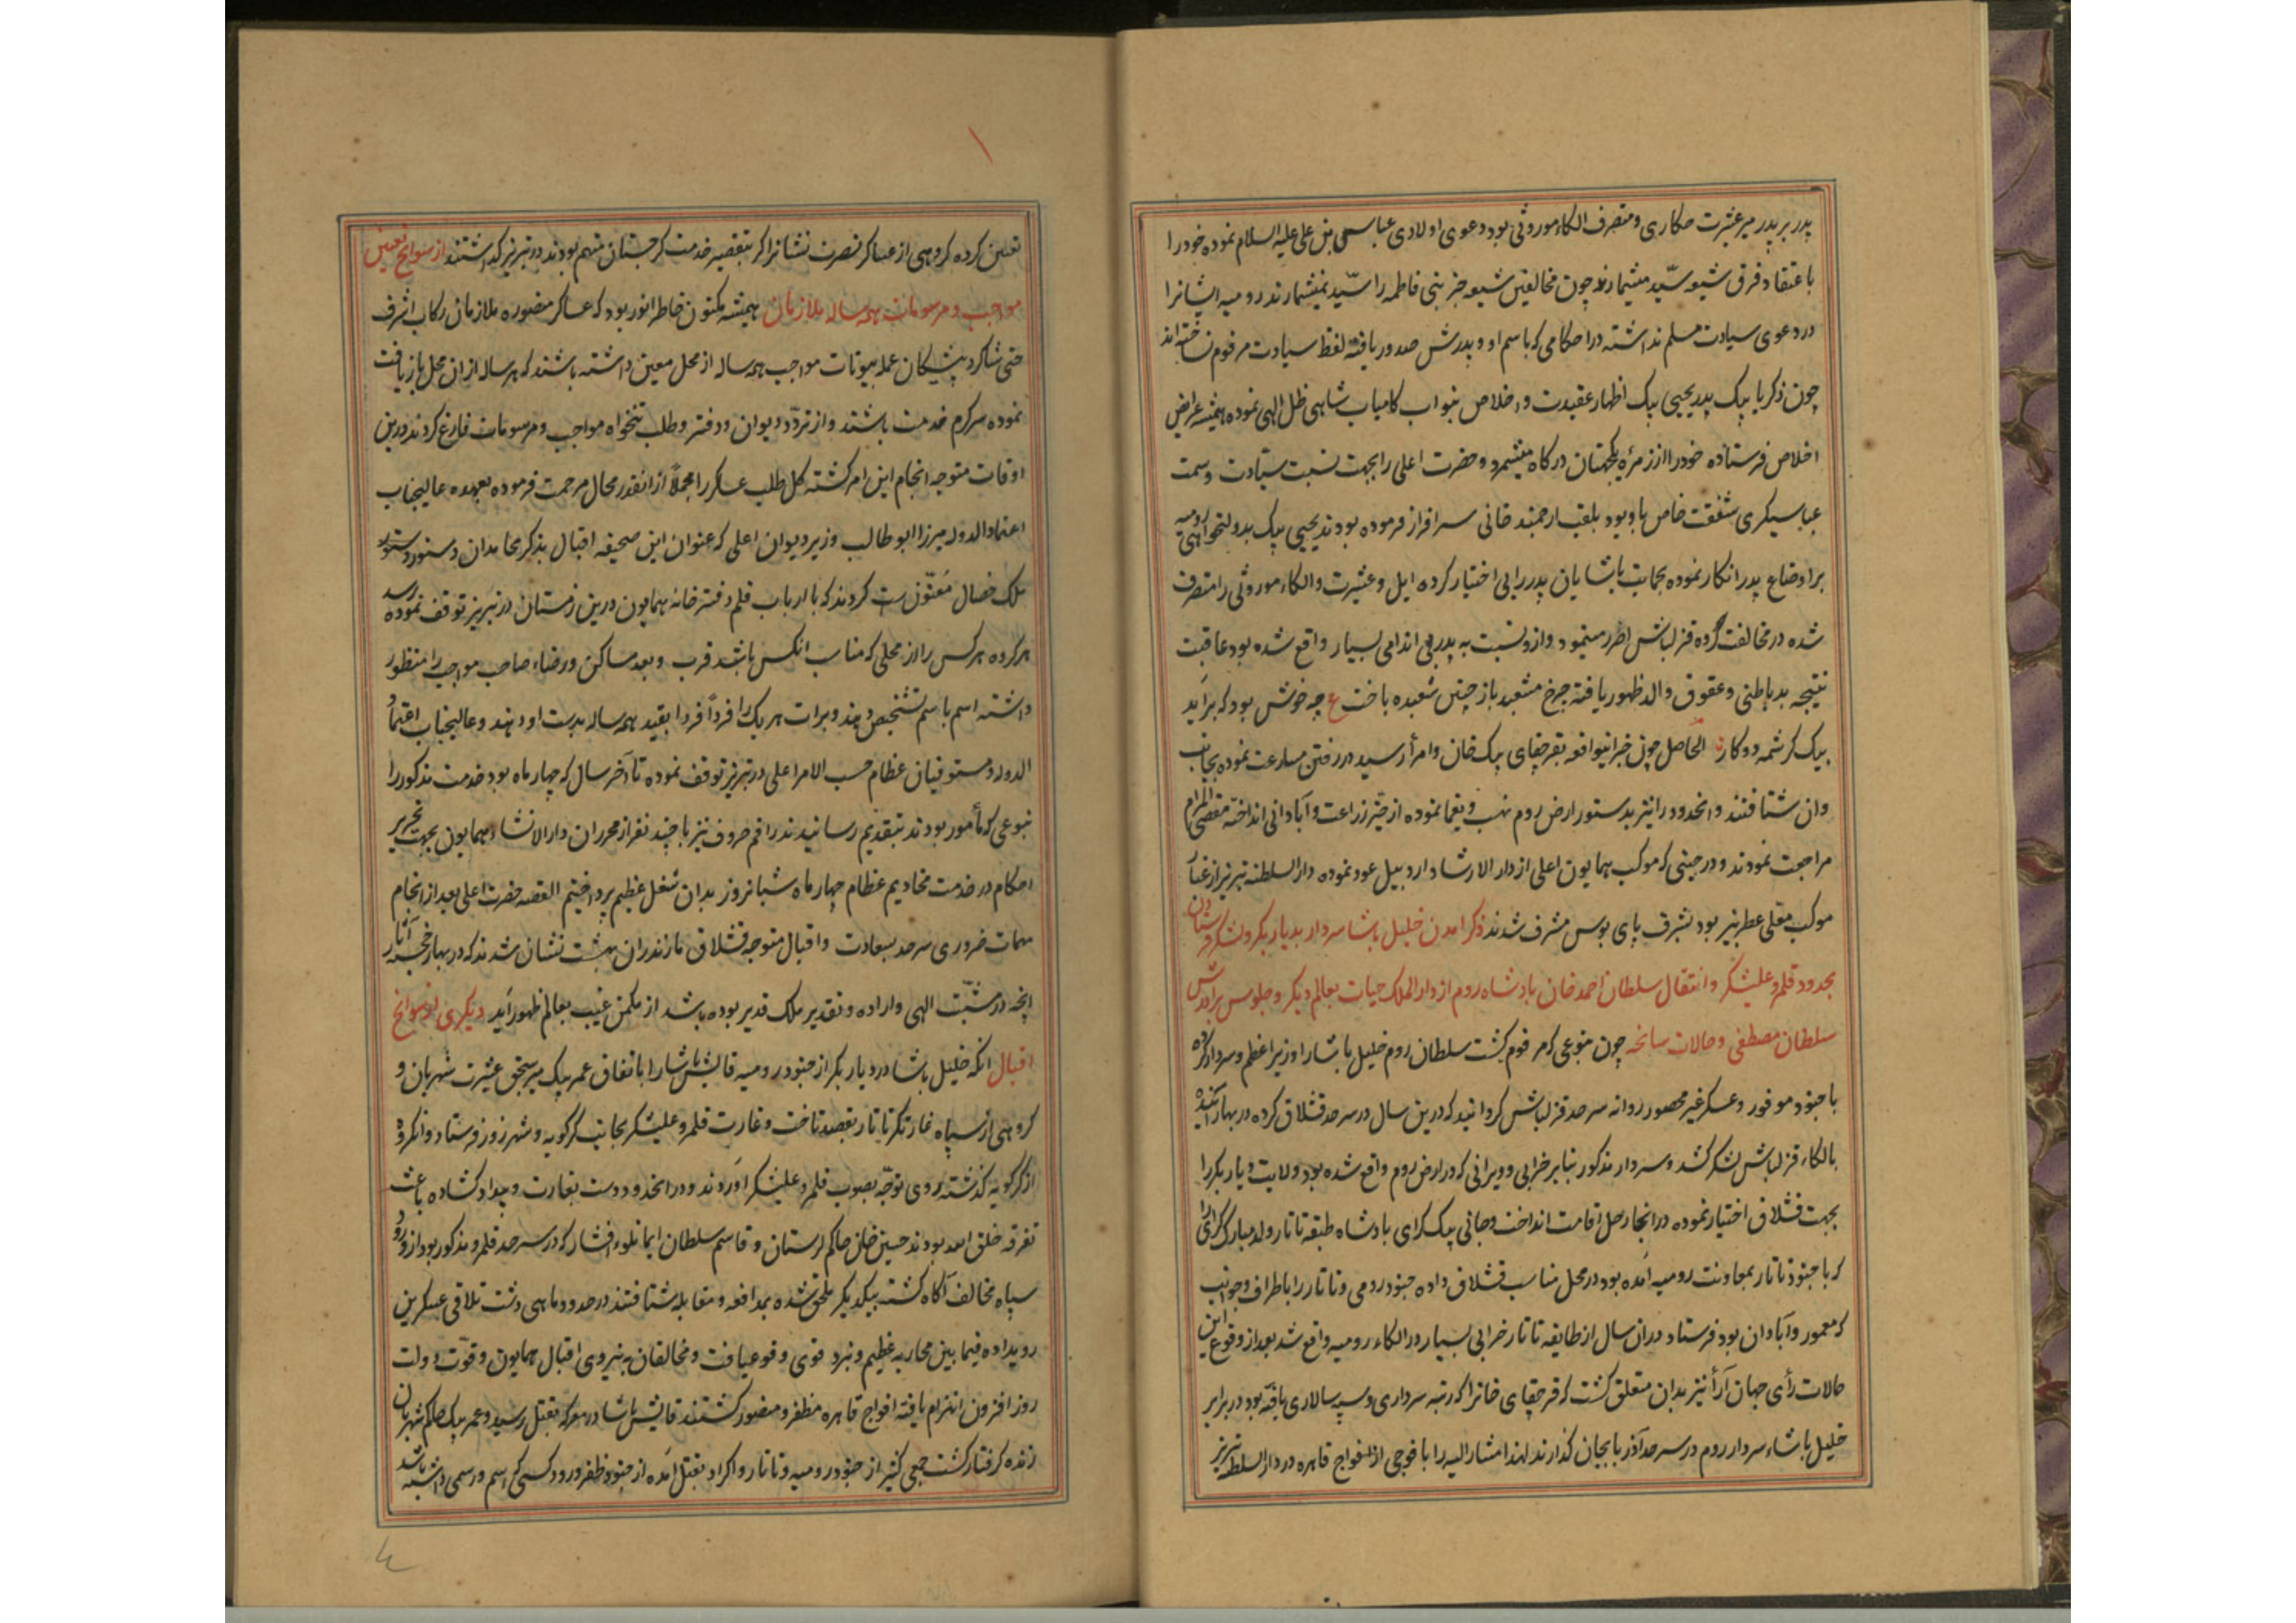 پدر بر پدر میر عشرت حکاری و متصرف الکاء موروثی بود دعوی اولادی عباس بن علی علیه السلام نموده خود را
با عتقاد فرق شیعه سیّد میشمارند چون مخالفین شیعه جز بنی فاطمه را سیّد نمیشمارند رومیه ایشانرا
در دعوی سیادت مسلم نداشته در احکامی که باسم او و پدرش صدور یافته لفظ سیادت مرقوم نساخته اند
چون ذکریا بیک پدر یحیی بیک اظهار عقیدت و اخلاص بنواب کامیاب شاهی ظل الهی نموده همیشه عرایض
اخلاص فرستاده خود را از زمره یکجهتان درکاه میشمرد و حضرت اعلی را بجهت نسبت سیّادت و سمت
عباسیکری شفقت خاص باو بود بلقب ارجمند خانی سرافراز فرموده بودند یحیی بیک بدولتخواهی رومیه
بر اوضاع پدر انکار نموده بحمایت پاشایان پدر رایی اختیار کرده ایل و عشیرت و الکاء موروثی را متصرف
شده در مخالفت گروه قزلباش اصرار مینمود و ازو نسبت به پدر بی اندامی بسیار واقع شده بود عاقبت
نتیجه بد باطنی و عقوق والد ظهور یافته چرخ مشعبد باز چنین شعبده باخت ع چه خوش بود که برآید
بیک کرشمه دو کار الحاصل چون خبر اینواقعه بقرچقای بیک خان و امرأ رسید در رفتن مسارعت نموده بجانب
وان شتافتند و انحدود را نیز بدستور ارض روم نهب و یغما نموده از حیّز زراعت و آبادانی انداخته مقضی المرام
مراجعت نمودند و در حینی که موکب همایون اعلی از دار الارشاد اردبیل عود نموده دار السلطنه تبریز از غبار
موکب معلی عطر بیز بود بشرف پای بوس مشرف شدند ذکر آمدن خلیل پاشا سردار بدیار بکر و لشکر فرستادن
بحدود قلمرو علیشکر و انتقال سلطان احمد خان پادشاه روم از دار الملک حیات بعالم دیگر و جلوس برادرش
سلطان مصطفی و حالات سانحه چون بنوعی که مرقوم کشت سلطان روم خلیل پاشا را وزیر اعظم و سردار کرده
با جنود موفور و عسکر غیر محصور روانه سرحد قزلباش کردانید که درین سال در سرحد قشلاق کرده در بهار آینده
بالکاء قزلباش لشکر کشد و سردار مذکور بنابر خرابی و ویرانی که در ارض روم واقع شده بود ولایت دیار بکر را
بجهت قشلاق اختیار نموده در انجا رحل اقامت انداخت و جانی بیک کرای پادشاه طبقه تاتار ولد مبارک کرای را
که با جنود تاتار بمعاونت رومیه آمده بود در محل مناسب قشلاق داده جنود رومی و تاتار را باطراف و جوانب
که معمور و آبادان بود فرستاد در ان سال از طایفه تاتار خرابی بسیار در الکاء رومیه واقع شد بعد از وقوع این
حالات رأی جهان آرأ نیز بدان متعلق کشت که قرچقای خانرا که رتبه سرداری و سپه سالاری یافته بود در برابر
خلیل پاشاء سردار روم در سرحد آذربایجان کذارند لهذا مشار الیه را با فوجی از افواج قاهره در دار السلطنه تبریز
۱
تعیین کرده کروهی از عساکر نصرت نشانرا که بتقصیر خدمت کرجستان متهم بودند در تبریز کذاشتند از سوانح تعیین
مواجب و مرسومات همه ساله ملازمان همیشه مکنون خاطر انور بود که عساکر منصوره ملازمان رکاب اشرف
حتی شاکرد پیشکان عمله بیوتات مواجب همه ساله از محل معین داشته باشند که هر ساله از ان محل بازیافت
نموده سرکرم خدمت باشند و از تردّد دیوان و دفتر و طلب تنخواه مواجب و مرسومات فارغ کردند درین
اوقات متوجه انجام این امر کشته کل طلب عساکر را مجملاً از انقدر محال مرحمت فرموده بعهده عالیجناب
اعتماد الدوله میرزا ابو طالب وزیر دیوان اعلی که عنوان این صحیفه اقبال بذکر محامد ان دستور
ملک خصال مُعَنْوَن ست کردند که با ارباب قلم دفتر خانه همایون درین زمستان در تبریز توقف نموده
هر کرده هر کس را از محلی که مناسب انکس باشد قرب و بعد مساکن و رضاء صاحب مواجب را منظور
داشته اسم باسم تشخیص دهند و برات هر یک را فرداً فردا بقید همه ساله بدست او دهند و عالیجناب اعتماد
الدوله و مستوفیان عظام حسب الامر اعلی در تبریز توقف نموده تا آخر سال که چهار ماه بود خدمت مذکور را
بنوعی که مأمور بودند بتقدیم رسانیدند راقم حروف نیز با چند نفر از محرران دار الانشاء همایون بجهت تحریر
احکام در خدمت مخادیم عظام چهار ماه شبانروز بدان شغل عظیم پرداختیم القصه حضرت اعلی بعد از انجام
مهمات ضروری سرحد بسعادت و اقبال متوجه قشلاق مازندران بهشت نشان شدند که در بهار خجسته آثار
انچه در مشیّت الهی و اراده و تقدیر ملک قدیر بوده باشد از مکمن غیب بعالم ظهور آید دیکری از سوانح
اقبال انکه خلیل پاشا در دیار بکر از جنود رومیه پاشا را باتفاق عمر بیک میر سنجق عشیرت شهربان و
کروهی از سپاه غارتکر تاتار بقصد تاخت و غارت قلمرو علیشکر بجانب کرکویه و شهرزور فرستاد و انکروه
از کرکویه کذشته روی توجّه بصوب قلمرو علیشکر آوردند و در انحدود دست بغارت و بیداد کشاده باعث
تفرقه خلق الله بودند حسین خان حاکم لرستان و قاسم سلطان ایمانلوء افشار که در سرحد قلمرو مذکور بود از ورود
سپاه مخالف آکاه کشته بیکدیکر ملحق شده بمدافعه و مقابله شتافتند در حدود ماهی دشت تلاقی عسکرین
رویداده فیما بین محاربه عظیم و نبرد قوی وقوع یافت و مخالفان به نیروی اقبال همایون و قوّت دولت
روز افزون انهزام یافته افواج قاهره مظفر و منصور کشتند پاشا در معرکه بقتل رسید و عمر بیک حاکم شهربان
زنده کرفتار کشت جمعی کثیر از جنود رومیه و تاتار و اکراد بقتل آمده از جنود ظفر ورود کسی که اسم و رسمی داشته باشد